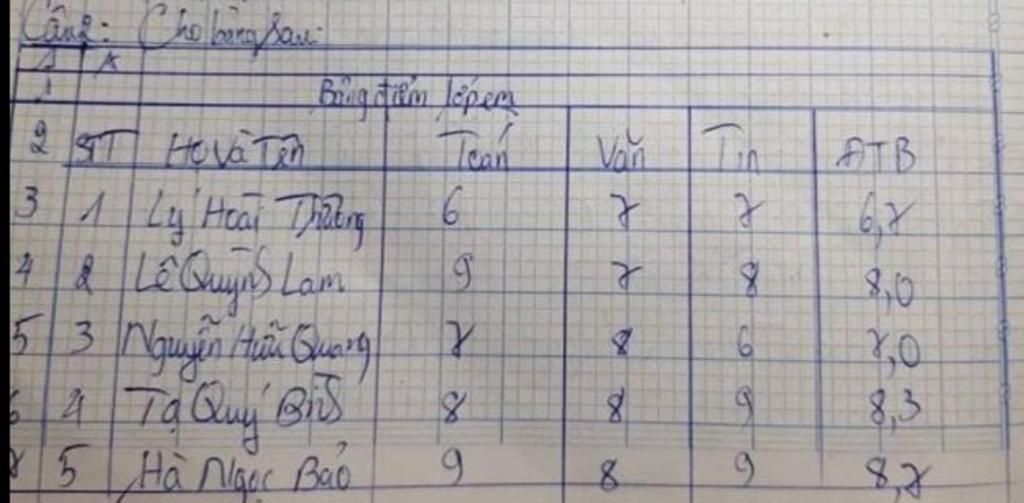 Câu 2: Cho bảng sau:
A A
1 Bảng điểm lớp em
2 ST Họ và Tên Toán Văn Tin ĐTB
3 1 Lý Hoài Thương 6 7 7 6,7
4 2 Lê Quỳnh Lam 9 7 8 8,0
5 3 Nguyễn Hữu Quang 7 8 6 7,0
6 4 Tạ Quý Bình 8 8 9 8,3
7 5 Hà Ngọc Bảo 9 8 9 8,7